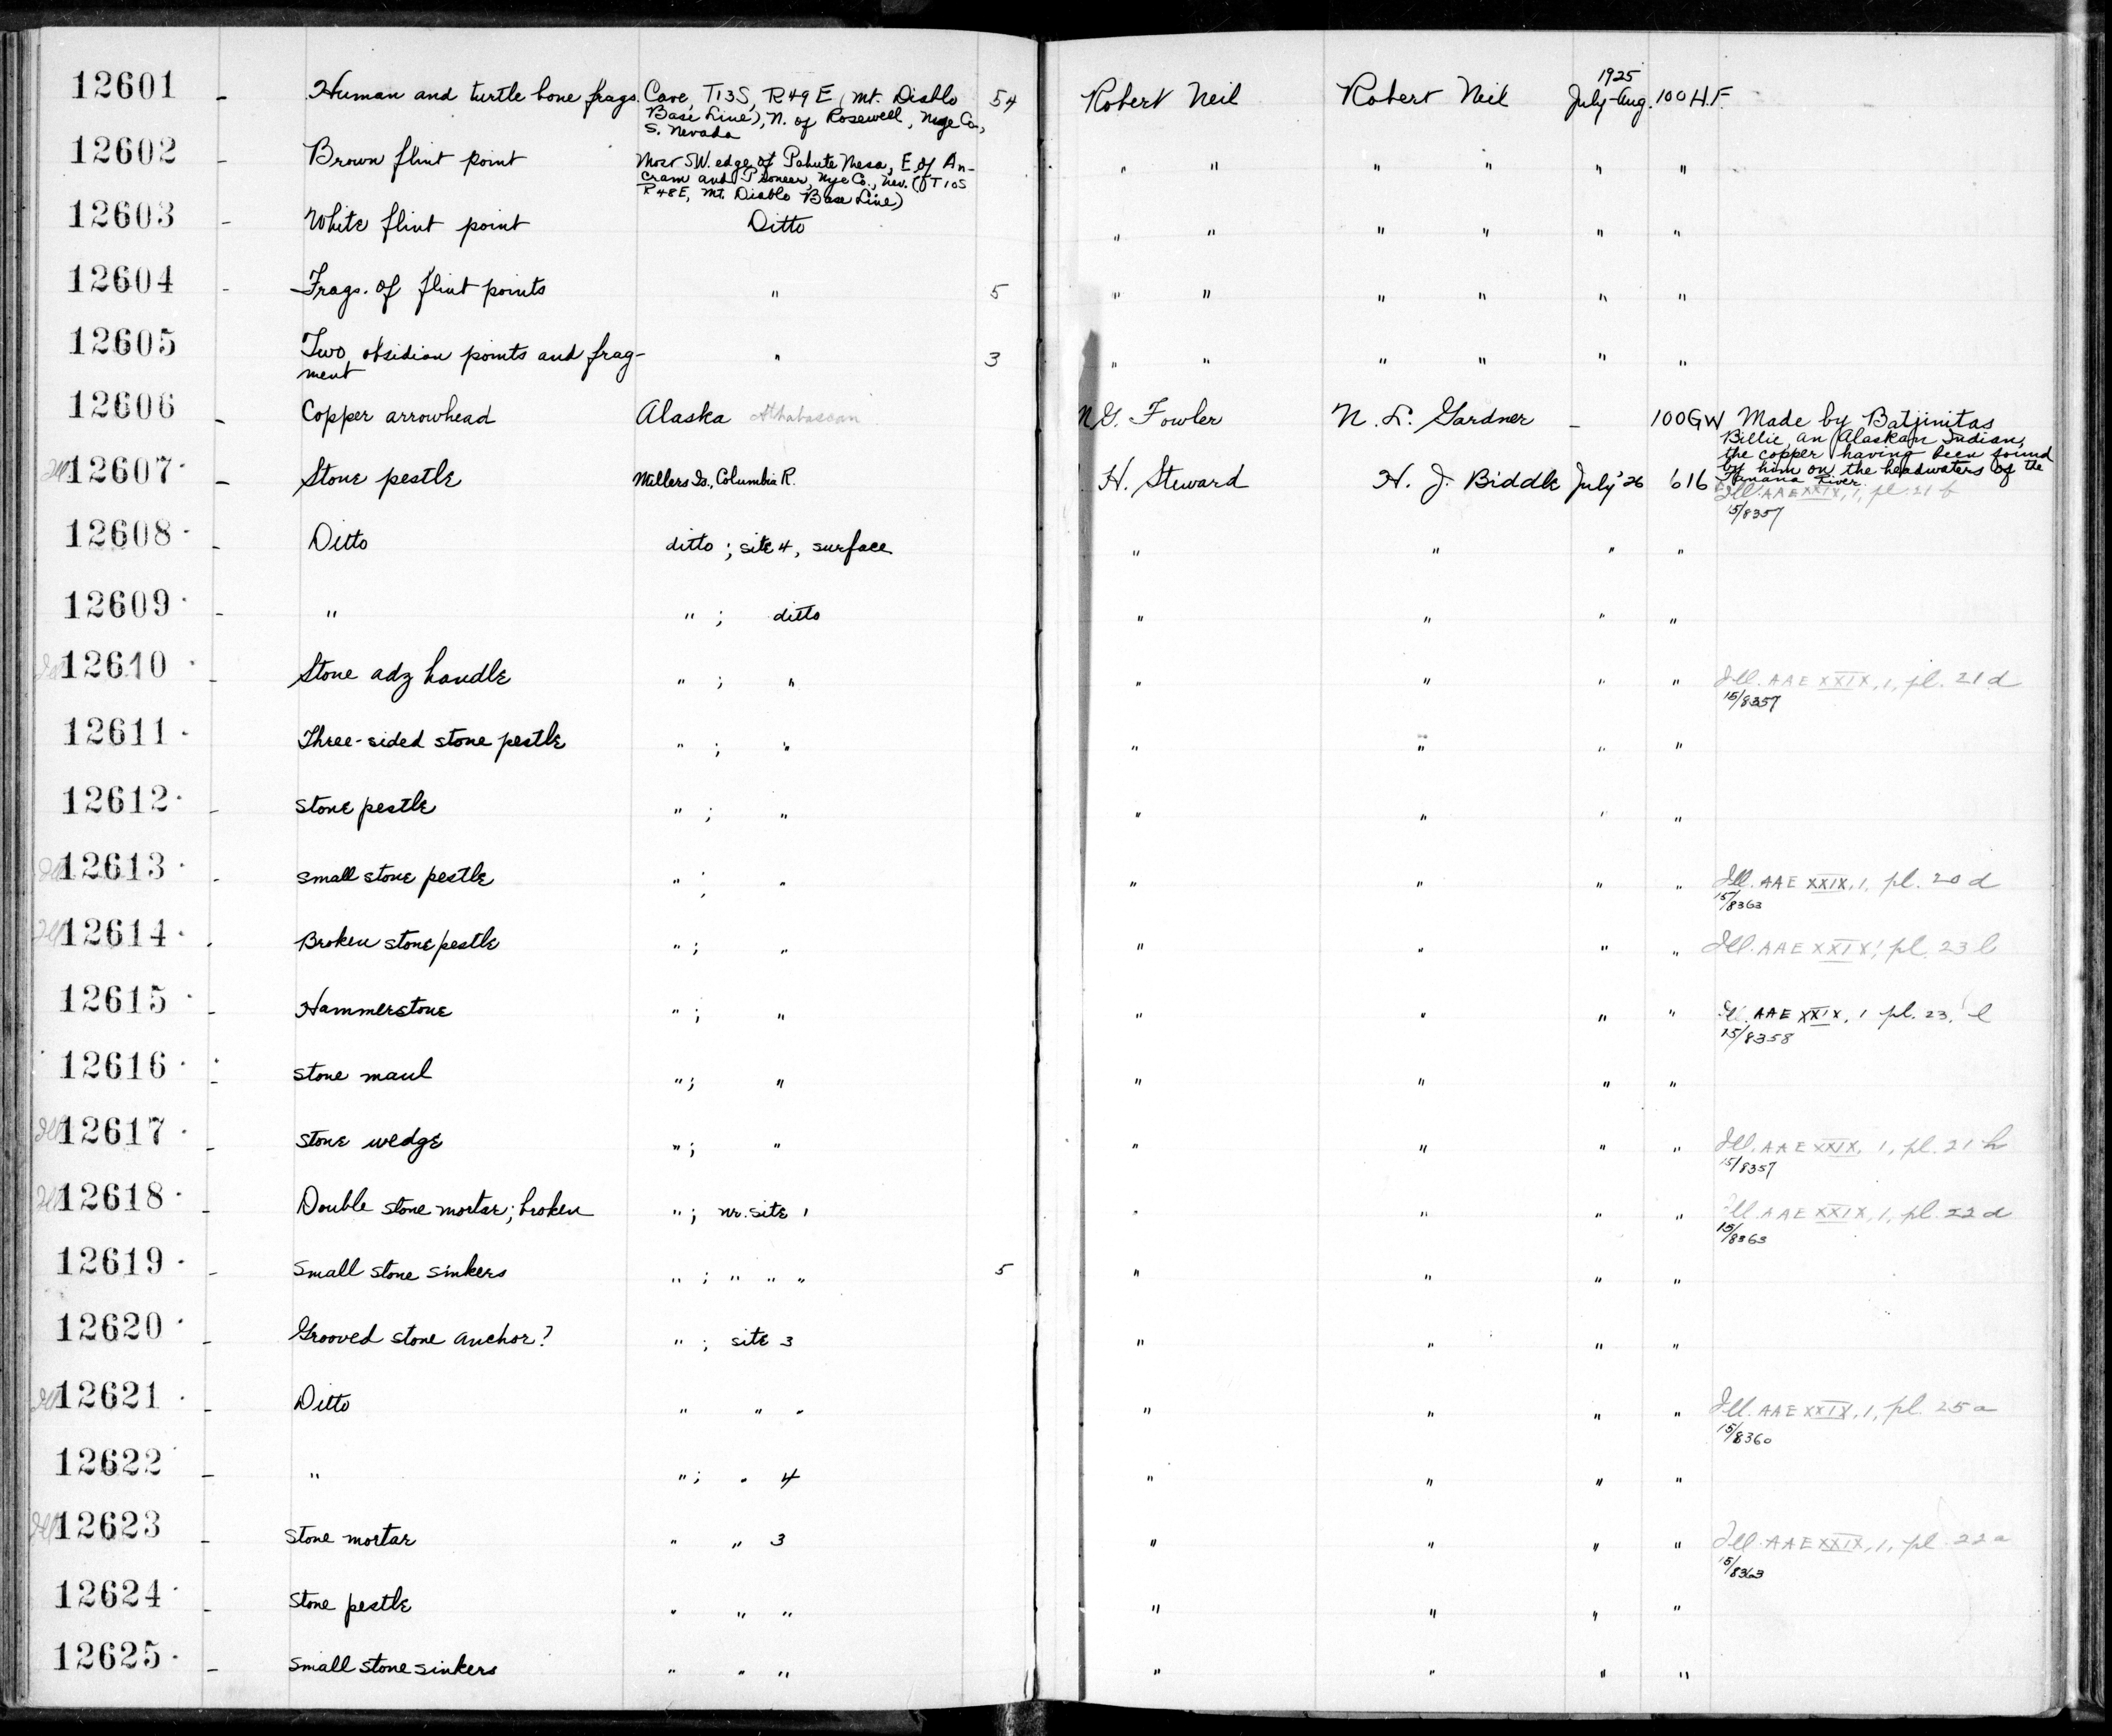 12601 - Human and turtle bone frags. Cave, T13S, R49E (Mt. Diablo 54 Robert Neil Robert Neil 1925 July-Aug. 100 H.F.
Base Line), N. of Rosewell, Nye Co.,
S. Nevada
12602 - Brown flint point Most SW. edge of Pahute Mesa, E. of An- " " " " " "
cram and Pioneer, Nye Co., Nev. (T10S
R48E, Mt. Diablo Base Line)
12603 - White flint point Ditto " " " " " "
12604 - Frags. of flint points " 5 " " " " " "
12605 Two obsidian points and frag- " 3 " " " " " "
ment
12606 - Copper arrowhead Alaska Athabascan N.G. Fowler N. L. Gardner - 100GW Made by Batjinitas
Billie, an Alaskan Indian,
the copper having been found
by him on the headwaters of the
Tanana River.
Ill. 12607 - Stone pestle Millers Is., Columbia R. H. Steward H. J. Biddle July '26 616 Ill. AAE XXIX, 1, pl. 21 f
15/8357
12608 - Ditto ditto ; site 4, surface " " " "
12609 - " " ; ditto " " " "
Ill. 12610 - Stone adz handle " ; " " " " " Ill. AAE XXIX, 1, pl. 21 d
15/8357
12611 - Three-sided stone pestle " ; " " " " "
12612 - stone pestle " ; " " " " "
Ill. 12613 - small stone pestle " ; " " " " " Ill. AAE XXIX, 1, pl. 20 d
15/8363
Ill. 12614 - Broken stone pestle " ; " " " " " Ill. AAE XXIX, pl. 23 l
12615 - Hammerstone " ; " " " " " Ill. AAE XXIX, 1 pl. 23, l
15/8358
12616 - stone maul " ; " " " " "
Ill. 12617 - stone wedge " ; " " " " " Ill. AAE XXIX, 1, pl. 21 h
15/8357
Ill. 12618 - Double stone mortar; broken " ; nr. site 1 " " " " Ill. AAE XXIX, 1, pl. 22 d
15/8363
12619 - Small stone sinkers " ; " " " 5 " " " "
12620 - Grooved stone anchor? " ; site 3 " " " "
Ill. 12621 - Ditto " " " " " " " Ill. AAE XXIX, 1, pl. 25 a
15/8360
12622 - " " ; " 4 " " " "
Ill. 12623 - Stone mortar " " 3 " " " " Ill. AAE XXIX, 1, pl. 22 a
15/8363
12624 - Stone pestle " " " " " " "
12625 - Small stone sinkers " " " " " " "